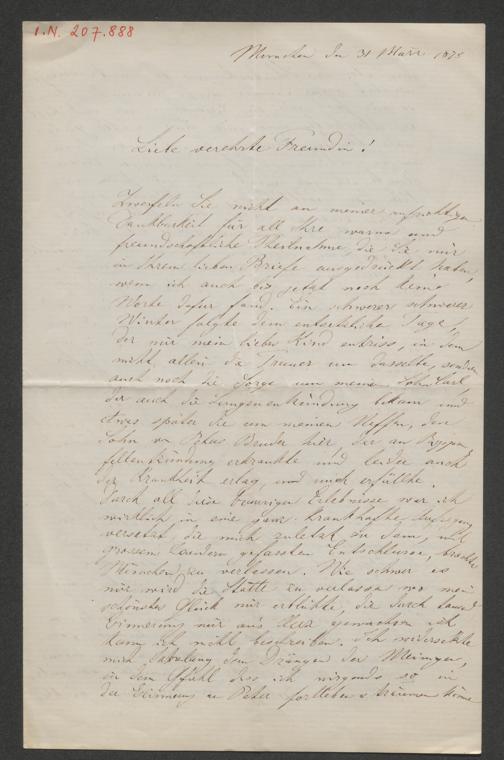 I.N. 207.888
München den 31 März 1875
Liebe verehrte Freundin!
Zweifeln Sie nicht an meiner aufrichtigen
Dankbarkeit für all Ihre warme und
freundschaftliche Theilnahme, die Sie mir
in Ihrem lieben Briefe ausgedrückt haben,
wenn ich auch bis jetzt noch keine
Worte dafür fand. Ein schwerer schwerer
Winter folgte dem entsetzlichen Tage,
der mir mein liebes Kind entriss, in dem
nicht allein die Trauer um dasselbe, sondern
auch noch die Sorge um meinen Sohn Carl,
der auch die Lungenentzündung bekam und
etwas später die um meinen Neffen, den
Sohn von Bruder hier, der an Rippen-
fellentzündung erkrankte und leider auch
der Krankheit erlag, mich erfüllte.
Durch all diese traurigen Erlebnisse war ich
wirklich in eine ganz krankhafte Aufregung
versetzt, die mich zuletzt zu dem, mit
grossem gefassten Entschlusse, brachte
München zu verlassen. Wie schwer es
mir wird die Stätte zu verlassen wo mein
schönstes Glück mir erblühte, die durch tausend
Erinnerung mir ans Herz gewachsen ist
kann ich nicht beschreiben. Ich widersetzte
mich dem Drängen der Meinigen,
in dem Gefühl dass ich nirgends so in
der Erinnerung an Peter fortleben & träumen könne